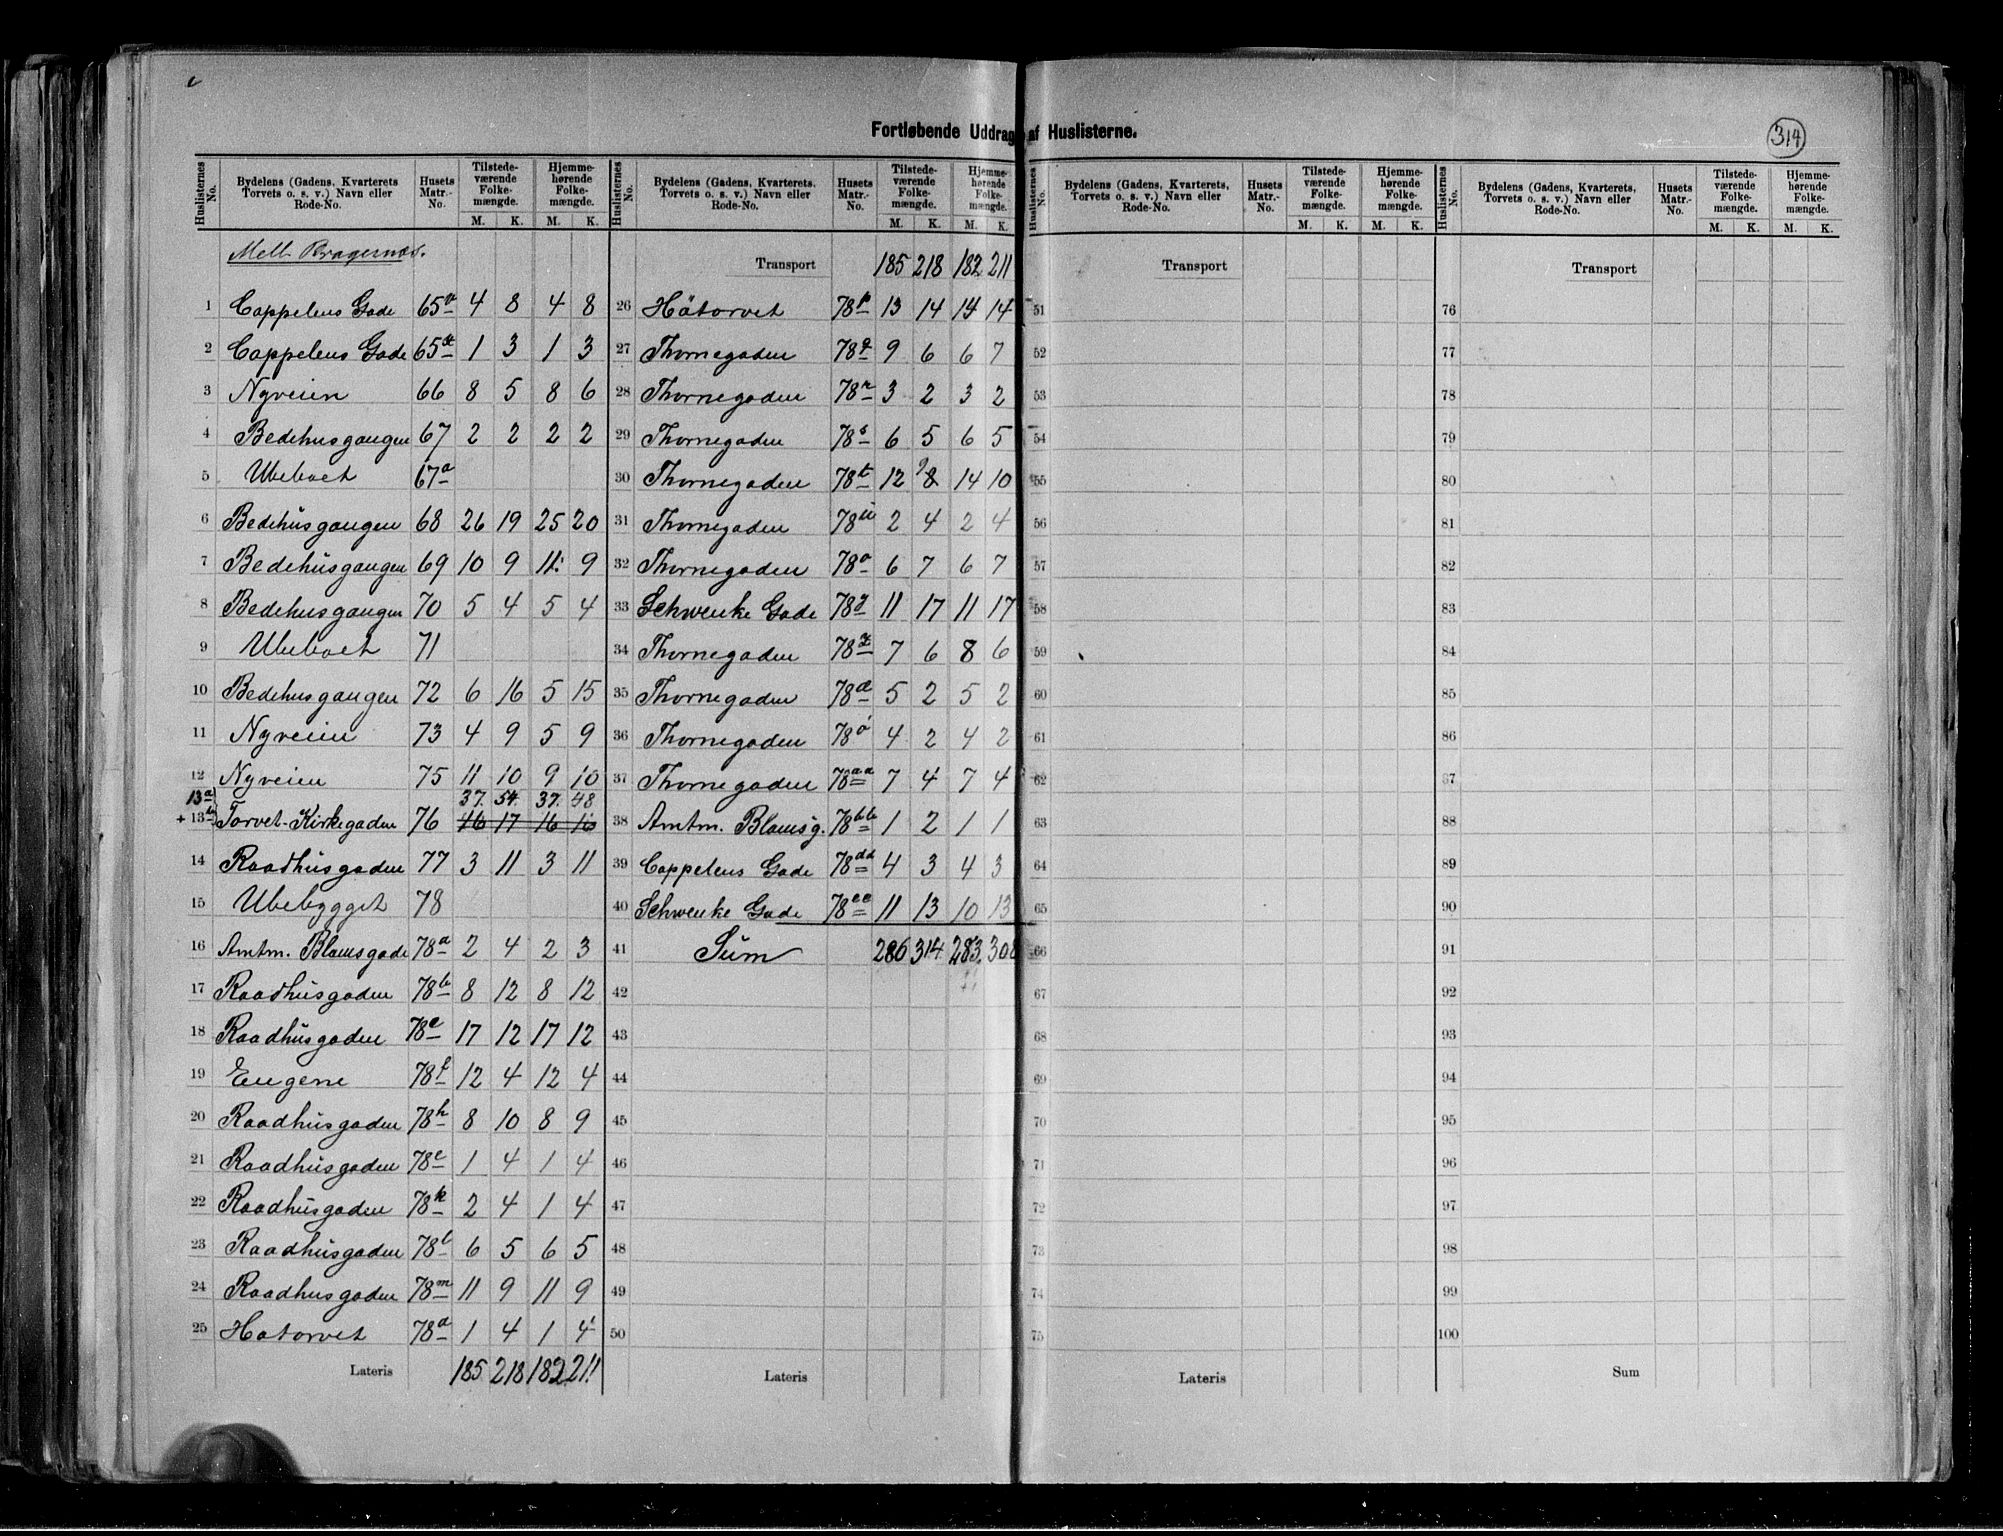 Fortløbende Uddrag af Huslisterne.
314
Huslisternes No. | Bydelens (Gadens, Kvarterets, Torvets o. s. v.) Navn eller Rode-No. | Husets Matr.-No. | Tilstedeværende Folkemængde. M. K. | Hjemmehørende Folkemængde. M. K.
Mell. Bragernæs.
1 Cappelens Gade 65 4 8 4 8
2 Cappelens Gade 65 1 3 1 3
3 Nyveien 66 8 5 8 6
4 Bedehusgangen 67 2 2 2 2
5 Ubeboet 67a
6 Bedehusgangen 68 26 19 25 20
7 Bedehusgangen 69 10 9 11 9
8 Bedehusgangen 70 5 4 5 4
9 Ubeboet 71
10 Bedehusgangen 72 6 16 5 15
11 Nyveien 73 4 9 5 9
12 Nyveien 75 11 10 9 10
13a 37. 54. 37. 48
+ 13b Torvet-Kirkegaden 76 16 17 16 16
14 Raadhusgaden 77 3 11 3 11
15 Ubebygget 78
16 Amtm. Blomsgade 78a 2 4 2 3
17 Raadhusgaden 78b 8 12 8 12
18 Raadhusgaden 78e 17 12 17 12
19 Eugene 78f 12 4 12 4
20 Raadhusgaden 78h 8 10 8 9
21 Raadhusgaden 78 1 4 1 4
22 Raadhusgaden 78k 2 4 1 4
23 Raadhusgaden 78l 6 5 6 5
24 Raadhusgaden 78m 11 9 11 9
25 Hatorvet 78 1 4 1 4
Lateris 185 218 182 211
Huslisternes No. | Bydelens (Gadens, Kvarterets, Torvets o. s. v.) Navn eller Rode-No. | Husets Matr.-No. | Tilstedeværende Folkemængde. M. K. | Hjemmehørende Folkemængde. M. K.
Transport 185 218 182 211
26 Hötorvet 78p 13 14 14 14
27 Thornegaden 78q 9 6 6 7
28 Thornegaden 78r 3 2 3 2
29 Thornegaden 78s 6 5 6 5
30 Thornegaden 78t 12 9 8 14 10
31 Thornegaden 78u 2 4 2 4
32 Thornegaden 78 6 7 6 7
33 Schwenke Gade 78y 11 17 11 17
34 Thornegaden 78z 7 6 8 6
35 Thornegaden 78æ 5 2 5 2
36 Thornegaden 78ø 4 2 4 2
37 Thornegaden 78aa 7 4 7 4
38 Amtm. Blomsg. 78bb 1 2 1 1
39 Cappelens Gade 78dd 4 3 4 3
40 Schwenke Gade 78ee 11 13 10 13
41 Sum 286 314 283 308
42
43
44
45
46
47
48
49
50
Lateris
Huslisternes No. | Bydelens (Gadens, Kvarterets, Torvets o. s. v.) Navn eller Rode-No. | Husets Matr.-No. | Tilstedeværende Folkemængde. M. K. | Hjemmehørende Folkemængde. M. K.
Transport
51
52
53
54
55
56
57
58
59
60
61
62
63
64
65
66
67
68
69
70
71
72
73
74
75
Lateris
Huslisternes No. | Bydelens (Gadens, Kvarterets, Torvets o. s. v.) Navn eller Rode-No. | Husets Matr.-No. | Tilstedeværende Folkemængde. M. K. | Hjemmehørende Folkemængde. M. K.
Transport
76
77
78
79
80
81
82
83
84
85
86
87
88
89
90
91
92
93
94
95
96
97
98
99
100
Sum